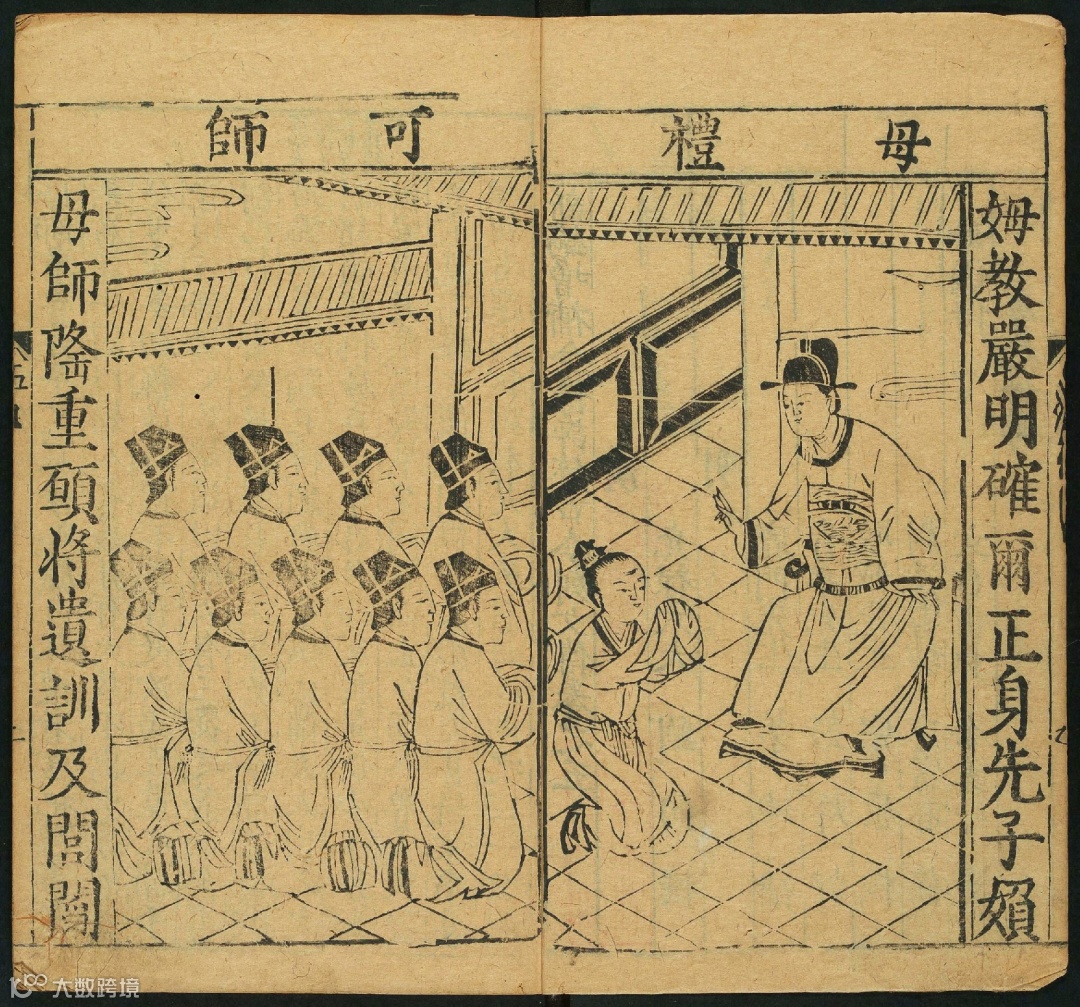 母禮
可師
姆教嚴明確爾正身先子媍
母師隆重願將遺訓及閭閻
大数跨境